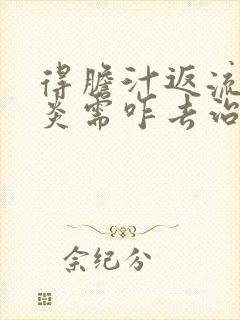 得膽汁返流
炎需咋去治
佘纪分